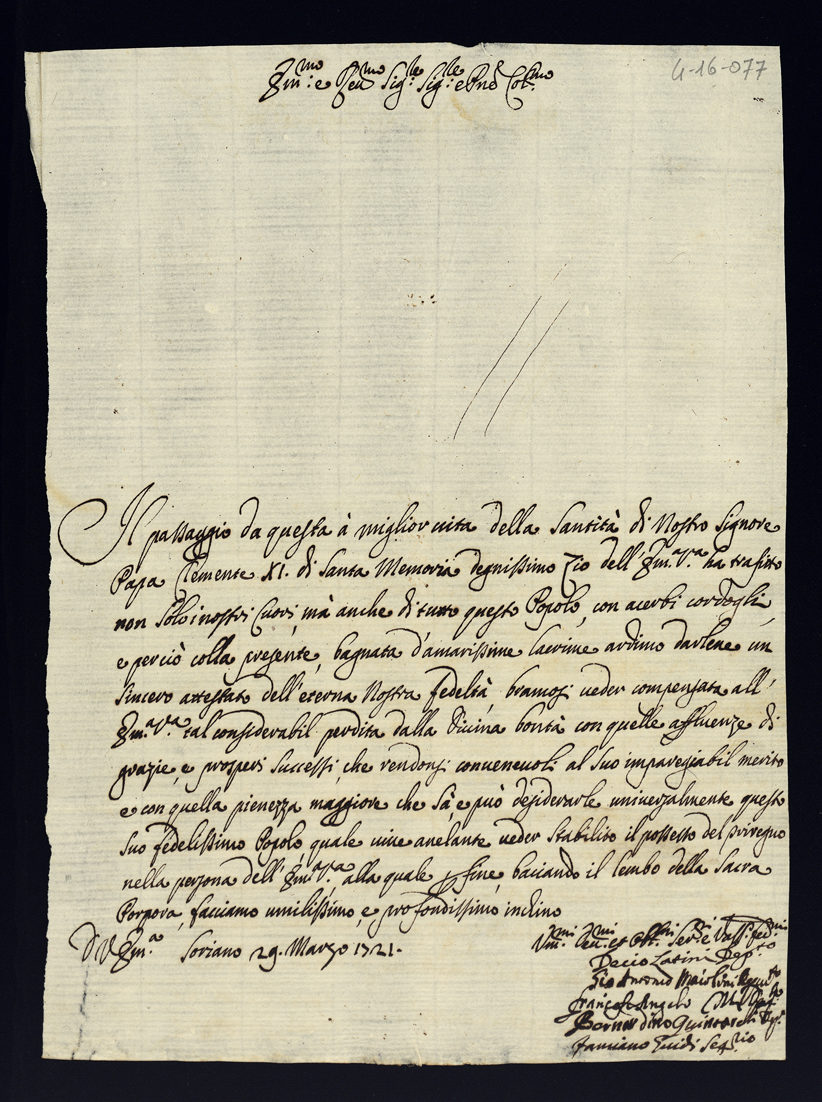 Em.mo e Rev.mo Sig.re Sig.re e Pne Col.mo
4-16-077
Il passaggio da questa à miglior vita della Santità di Nostro Signore
Papa Clemente XI. di Santa Memoria degnissimo Zio dell'Em.a V.a ha trafitto
non solo i nostri Cuori, mà anche di tutto questo Popolo, con acerbi cordogli,
e perciò colla presente, bagnata d'amarissime lacrime ardimo darlene un
sincero attestato dell'eterna Nostra fedeltà, bramosi veder compensata all'
Em.a V.a tal considerabil perdita dalla Divina bontà con quelle affluenze di
grazie, e prosperi successi, che rendonsi convenevoli al suo impareggiabil merito
e con quella pienezza maggiore che sà, e può desiderarle universalmente questo
suo fedelissimo Popolo, quale vive anelante veder stabilito il possesso del Triregno
nella persona dell'Em.a V.a, alla quale per fine, baciando il lembo della Sacra
Porpora, facciamo umilissimo, e profondissimo inchino
D V Em.a Soriano 29. Marzo 1721.
Um.mi Dev.mi et Obb.mi Ser.ri e Vass. fed.mi
Decio Latini Dep.to
Gio Antonio
Francesco Angelo
Bernardino
Famiano Guidi Seg.rio